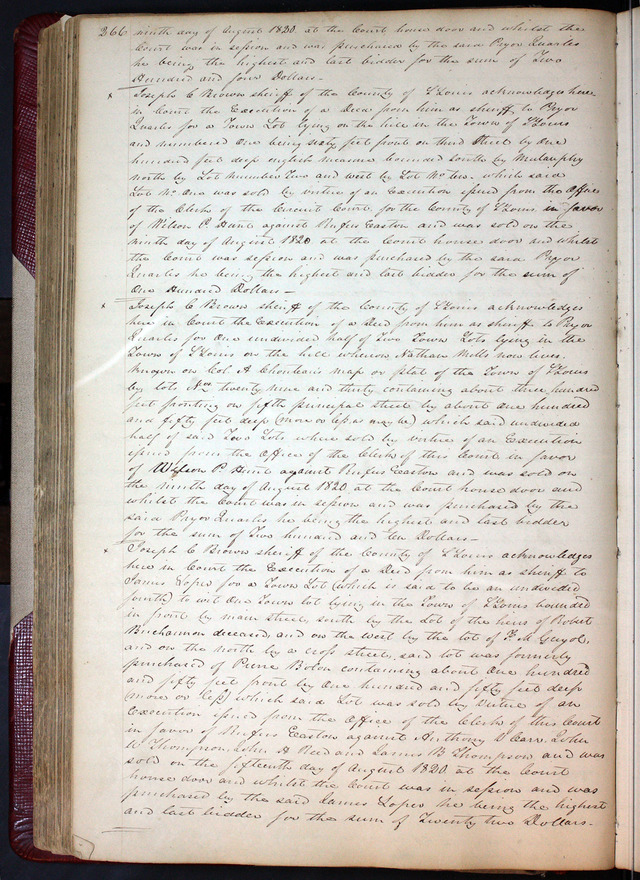 266 ninth day of August 1820 at the Court house door and whilst the
Court was in session and was purchased by the said Pryor Quarles
he being the highest and last bidder for the sum of Two
Hundred and four Dollars —
x Joseph C Brown sheriff of the County of St Louis acknowledges here
in Court the Execution of a Deed from him as sheriff to Pryor
Quarles for a Town Lot lying on the hill in the Town of St Louis
and numbered One being sixty feet front on third street by One
hundred feet deep english measure bounded South by Mulanphy
north by Lot number Two and west by Lot No two. which said
Lot No One was sold by virtue of an Execution issued from the Office
of the Clerk of the Circuit Court for the County of St Louis in favor
of Wilson P. Hunt against Rufus Easton and was sold on the
ninth day of August 1820 at the Court house door and whilst
the Court was session and was purchased by the said Pryor
Quarles he being the highest and last bidder for the sum of
One Hundred Dollars —
x Joseph C Brown sheriff of the County of St Louis acknowledges
here in Court the Execution of a Deed from him as sheriff to Pryor
Quarles for One undivided half of two Town Lots lying in the
Town of St Louis on the hill whereon Nathan Mills now lives.
Known on Col. A Chouteau's map or plat of the Town of St Louis
by lots Nos twenty nine and thirty containing about three hundred
feet fronting on fifth principal street by about One hundred
and fifty feet deep (more or less as may be) which said undivided
half of said Two Lots where sold by virtue of an Execution
issued from the Office of the Clerk of this Court in favor
of Wilson P. Hunt against Rufus Easton and was sold on
the ninth day of August 1820 at the Court house door and
whilst the Court was in session and was purchased by the
said Pryor Quarles he being the highest and last bidder
for the sum of Two hundred and ten Dollars —
x Joseph C Brown sheriff of the County of St Louis acknowledges
here in Court the Execution of a Deed from him as sheriff to
James Loper for a Town Lot (which is said to be an undivided
fourth) to wit One Town lot lying in the Town of St Louis bounded
in front by main street, south by the lot of the heirs of Robert
Buchannon deceased, and on the west by the lot of F. M. Guyol,
and on the north by a cross street, said lot was formerly
purchased of Pierre containing about One hundred
and fifty feet front by One hundred and fifty feet deep
more or less) which said Lot was sold by virtue of an
Execution issued from the Office of the Clerk of this Court
in favor of Rufus Easton against Anthony Carr John
W Thompson, John H Reed and James B Thompson and was
sold on the fifteenth day of August 1820 at the Court
house door and whilst the Court was in session and was
purchased by the said James Loper he being the highest
and last bidder for the sum of Twenty two Dollars —